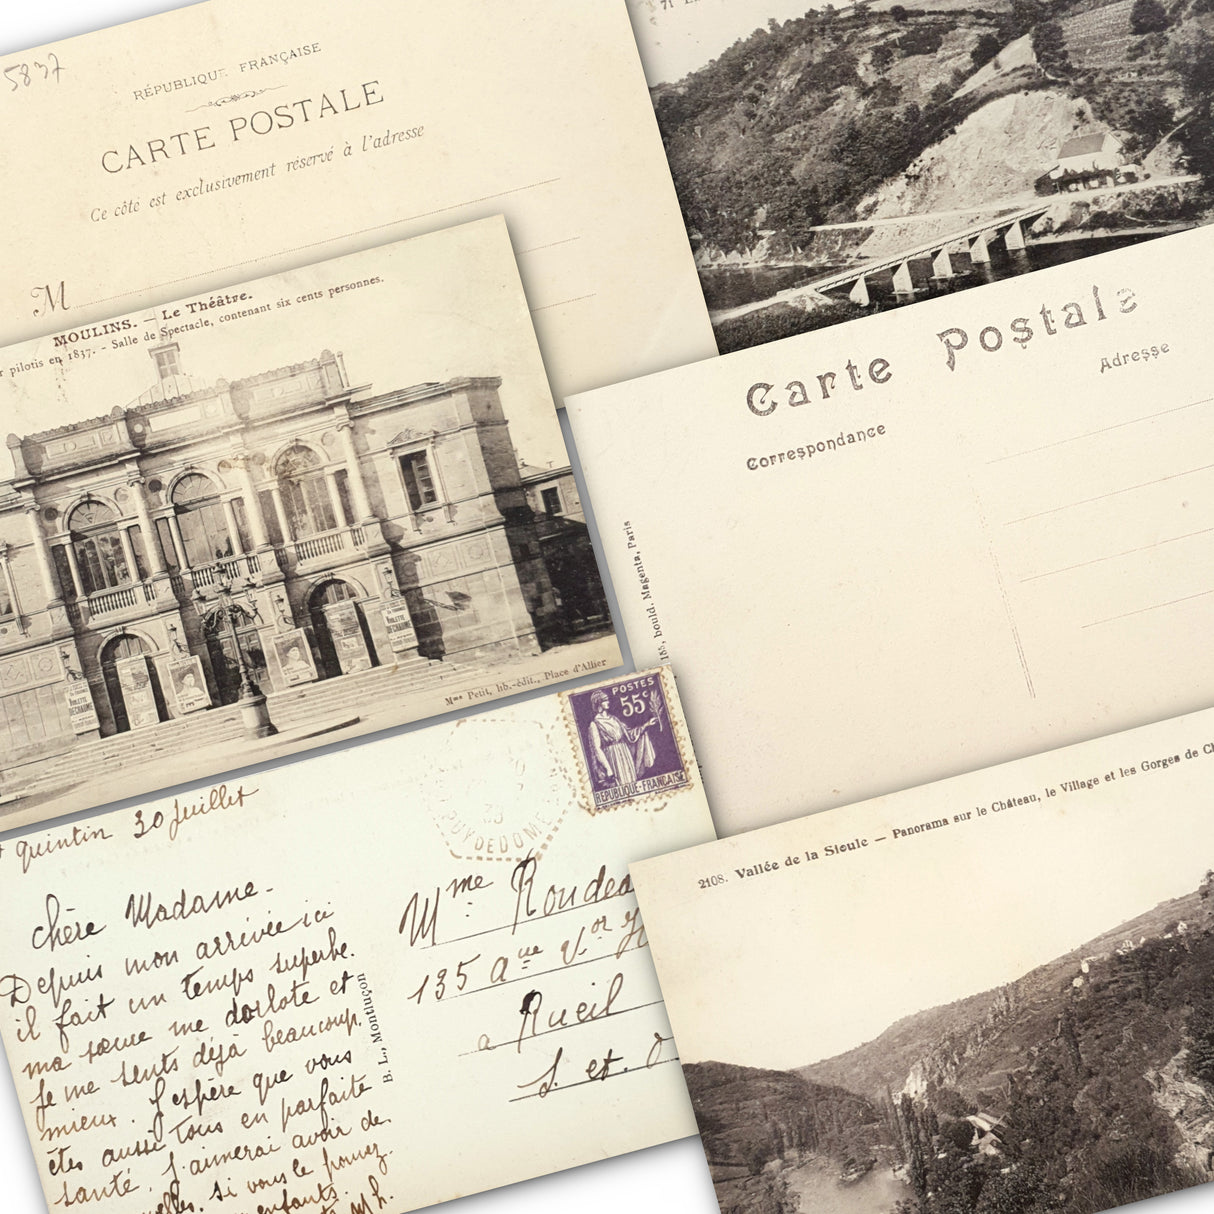 5837
RÉPUBLIQUE FRANÇAISE
CARTE POSTALE
Ce côté est exclusivement réservé à l'adresse
M
MOULINS. — Le Théâtre.
pilotis en 1837. - Salle de Spectacle, contenant six cents personnes.
Mme Petit, lib.-édit., Place d'Allier
71
Carte Postale
Correspondance
Adresse
bould. Magenta, Paris
POSTES
55c
RÉPUBLIQUE·FRANÇAISE
PUY DE DOME
Quintin 30 Juillet
Chère Madame -
Depuis mon arrivée ici
il fait un temps superbe.
ma sœur me dorlote et
je me sents déjà beaucoup
mieux. J'espère que vous
êtes aussi tous en parfaite
santé. J'aimerai avoir de
si vous le pouvez.
enfants.
B. L., Montluçon
Mme
135 Aue
a Rueil
S. et. O
2108. Vallée de la Sioule — Panorama sur le Château, le Village et les Gorges de